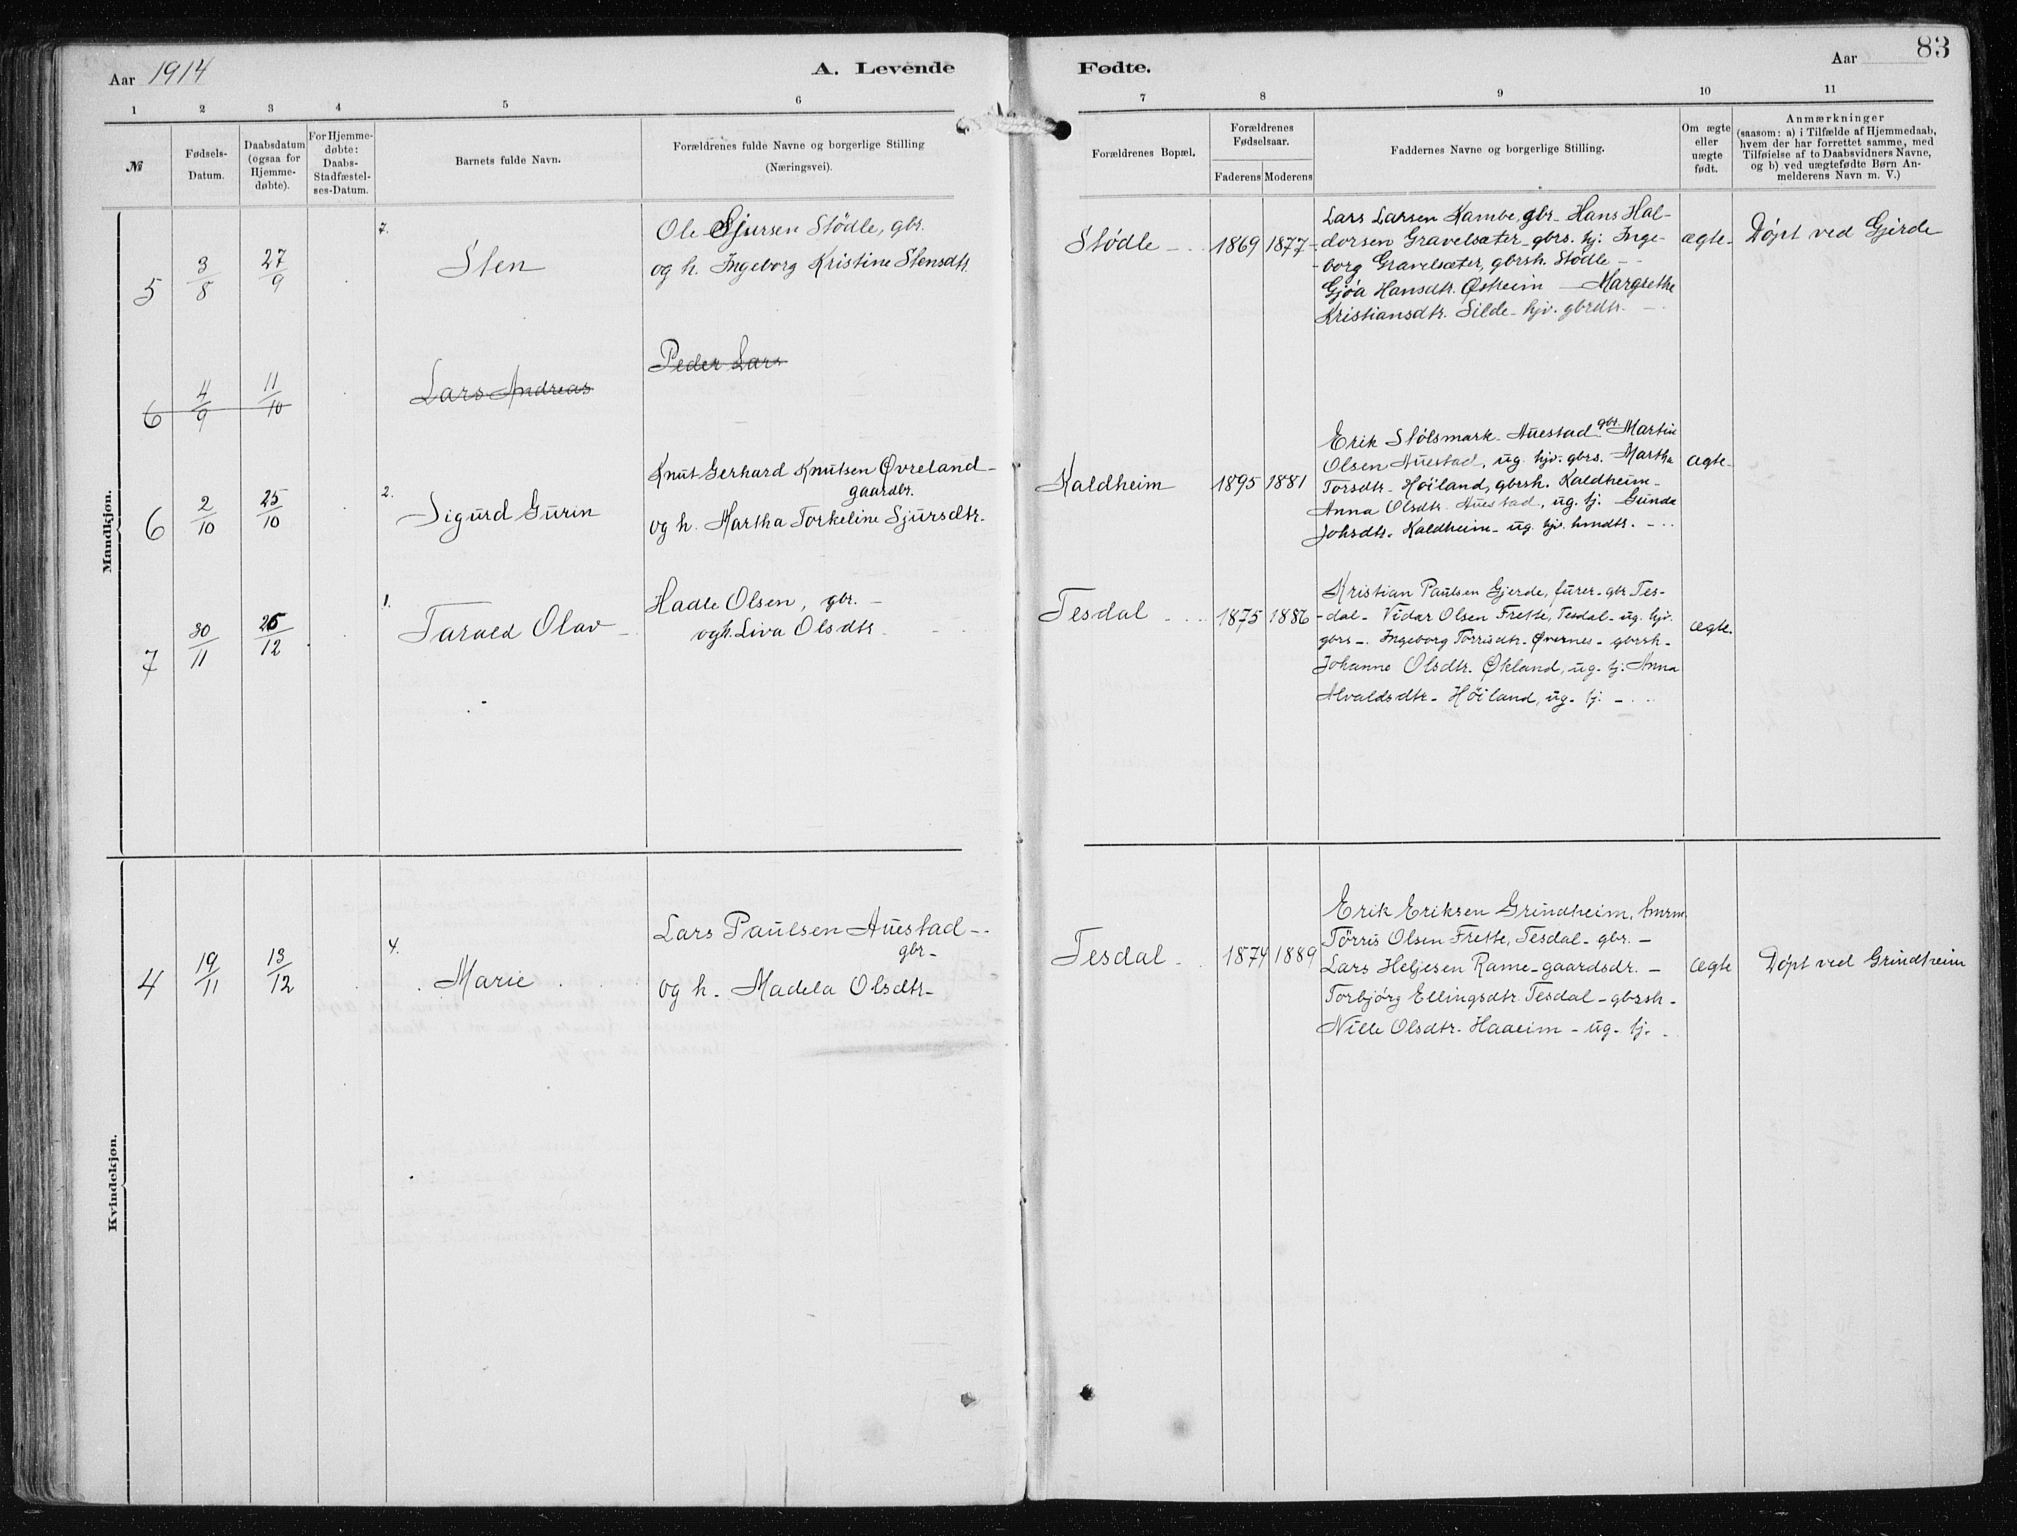 Aar 1914
A. Levende
Fødte.
Aar
83
1 2 3 4 5 6 7 8 9 10 11
№
Fødsels-
Datum.
Daabsdatum
(ogsaa for
Hjemme-
døbte).
For Hjemme-
døbte:
Daabs-
Stadfæstel-
ses-Datum.
Barnets fulde Navn.
Forældrenes fulde Navne og borgerlige Stilling
(Næringsvei).
Forældrenes Bopæl.
Forældrenes
Fødselsaar.
Faderens
Moderens
Faddernes Navne og borgerlige Stilling.
Om ægte
eller
uægte
født.
Anmærkninger
(saasom: a) i Tilfælde af Hjemmedaab,
hvem der har forrettet samme, med
Tilføielse af to Daabsvidners Navne,
og b) ved uægtefødte Børn An-
melderens Navn m. V.)
Mandkjøn.
5
3/8
27/9
7.
Sten
Ole Sjursen Stödle, gbr.
og h. Ingeborg Kristine Stensdtr.
Stödle
1869
1877
Lars Larsen Kambe, gbr. Hans Hal-
dorsen Gravelsæter gbrs. hj. Inge-
borg Gravelsæter, gbrsh. Stödle
Gjøa Hansdtr. Øsheim Margrethe
Kristiansdtr. Silde hjv. gbrdtr.
ægte
Döpt ved Gjerde
6
4/9
11/10
Lars Andreas
Peder Lars
6
2/10
25/10
2.
Sigurd Gurin
Knut Gerhard Knutsen Øvreland
gaardbr.
og h. Martha Torkeline Sjursdtr.
Kaldheim
1895
1881
Erik Stölsmark Auestad gbr. Martin
Olsen Auestad, ug. hjv. gbrs. Martha
Torsdtr. Höiland, gbrsh. Kaldheim
Anna Olsdtr. Auestad, ug. hj. Gunda
Johsdtr. Kaldheim ug. hjv. hmdtr.
ægte
7
30/11
26/12
1.
Tarald Olav
Hadle Olsen, gbr.
og h. Liva Olsdtr
Tesdal
1875
1886
Kristian Paulsen Gjerde, furer gbr. Tes-
dal Vidar Olsen Frette, Tesdal ug. hjv.
gbrs Ingeborg Torrisdtr. Øvernes gbrsh.
Johanne Olsdtr. Økland, ug. hj. Anna
Alvaldsdtr. Höiland, ug. hj.
ægte.
Kvindekjøn.
4
19/11
13/12
4.
Marie
Lars Paulsen Auestad
gbr
og h. Madela Olsdtr
Tesdal
1874
1889
Erik Eriksen Grindheim, hmrm
Törris Olsen Frette, Tesdal gbr.
Lars Heljesen Rame gaardsdr.
Torbjörg Ellingsdtr. Tesdal gbrsh
Nille Olsdtr. Haaeim ug. hj.
ægte
Döpt ved Grindheim